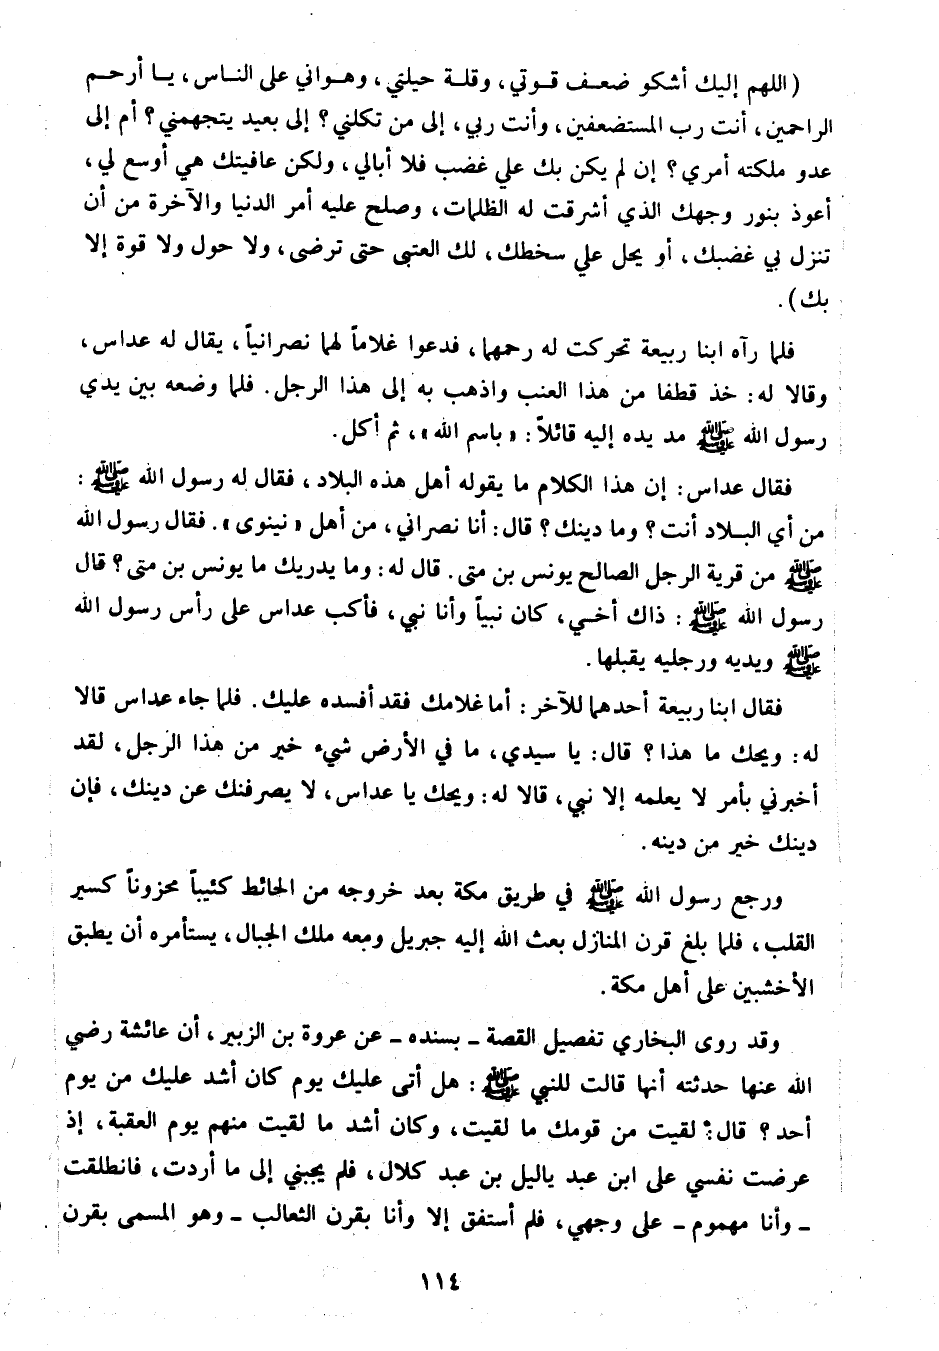 (اللهم إليك أشكو ضعف قوتي، وقلة حيلتي، وهواني على الناس، يا أرحم
الراحمين، أنت رب المستضعفين، وأنت ربي، إلى من تكلني؟ إلى بعيد يتجهمني؟ أم إلى
عدو ملكته أمري؟ إن لم يكن بك علي غضب فلا أبالي، ولكن عافيتك هي أوسع لي،
أعوذ بنور وجهك الذي أشرقت له الظلمات، وصلح عليه أمر الدنيا والآخرة من أن
تنزل بي غضبك، أو يحل علي سخطك، لك العتبى حتى ترضى، ولا حول ولا قوة إلا
بك).
فلما رآه ابنا ربيعة تحركت له رحمهما، فدعوا غلاماً لهما نصرانياً، يقال له عداس،
وقالا له: خذ قطفا من هذا العنب واذهب به إلى هذا الرجل. فلما وضعه بين يدي
رسول الله ﷺ مد يده إليه قائلاً: «باسم الله»، ثم أكل.
فقال عداس: إن هذا الكلام ما يقوله أهل هذه البلاد، فقال له رسول الله ﷺ :
من أي البلاد أنت؟ وما دينك؟ قال: أنا نصراني، من أهل «نينوى». فقال رسول الله
ﷺ من قرية الرجل الصالح يونس بن متى. قال له: وما يدريك ما يونس بن متى؟ قال
رسول الله ﷺ : ذاك أخي، كان نبياً وأنا نبي، فأكب عداس على رأس رسول الله
ﷺ ويديه ورجليه يقبلها.
فقال ابنا ربيعة أحدهما للآخر: أما غلامك فقد أفسده عليك. فلما جاء عداس قالا
له: ويحك ما هذا؟ قال: يا سيدي، ما في الأرض شيء خير من هذا الرجل، لقد
أخبرني بأمر لا يعلمه إلا نبي، قالا له: ويحك يا عداس، لا يصرفنك عن دينك، فإن
دينك خير من دينه.
ورجع رسول الله ﷺ في طريق مكة بعد خروجه من الحائط كئيباً محزوناً كسير
القلب، فلما بلغ قرن المنازل بعث الله إليه جبريل ومعه ملك الجبال، يستأمره أن يطبق
الأخشبين على أهل مكة.
وقد روى البخاري تفصيل القصة ـ بسنده ـ عن عروة بن الزبير، أن عائشة رضي
الله عنها حدثته أنها قالت للنبي ﷺ : هل أتى عليك يوم كان أشد عليك من يوم
أحد؟ قال: لقيت من قومك ما لقيت، وكان أشد ما لقيت منهم يوم العقبة، إذ
عرضت نفسي على ابن عبد ياليل بن عبد كلال، فلم يجبني إلى ما أردت، فانطلقت
ـ وأنا مهموم ـ على وجهي، فلم أستفق إلا وأنا بقرن الثعالب ـ وهو المسمى بقرن
١١٤